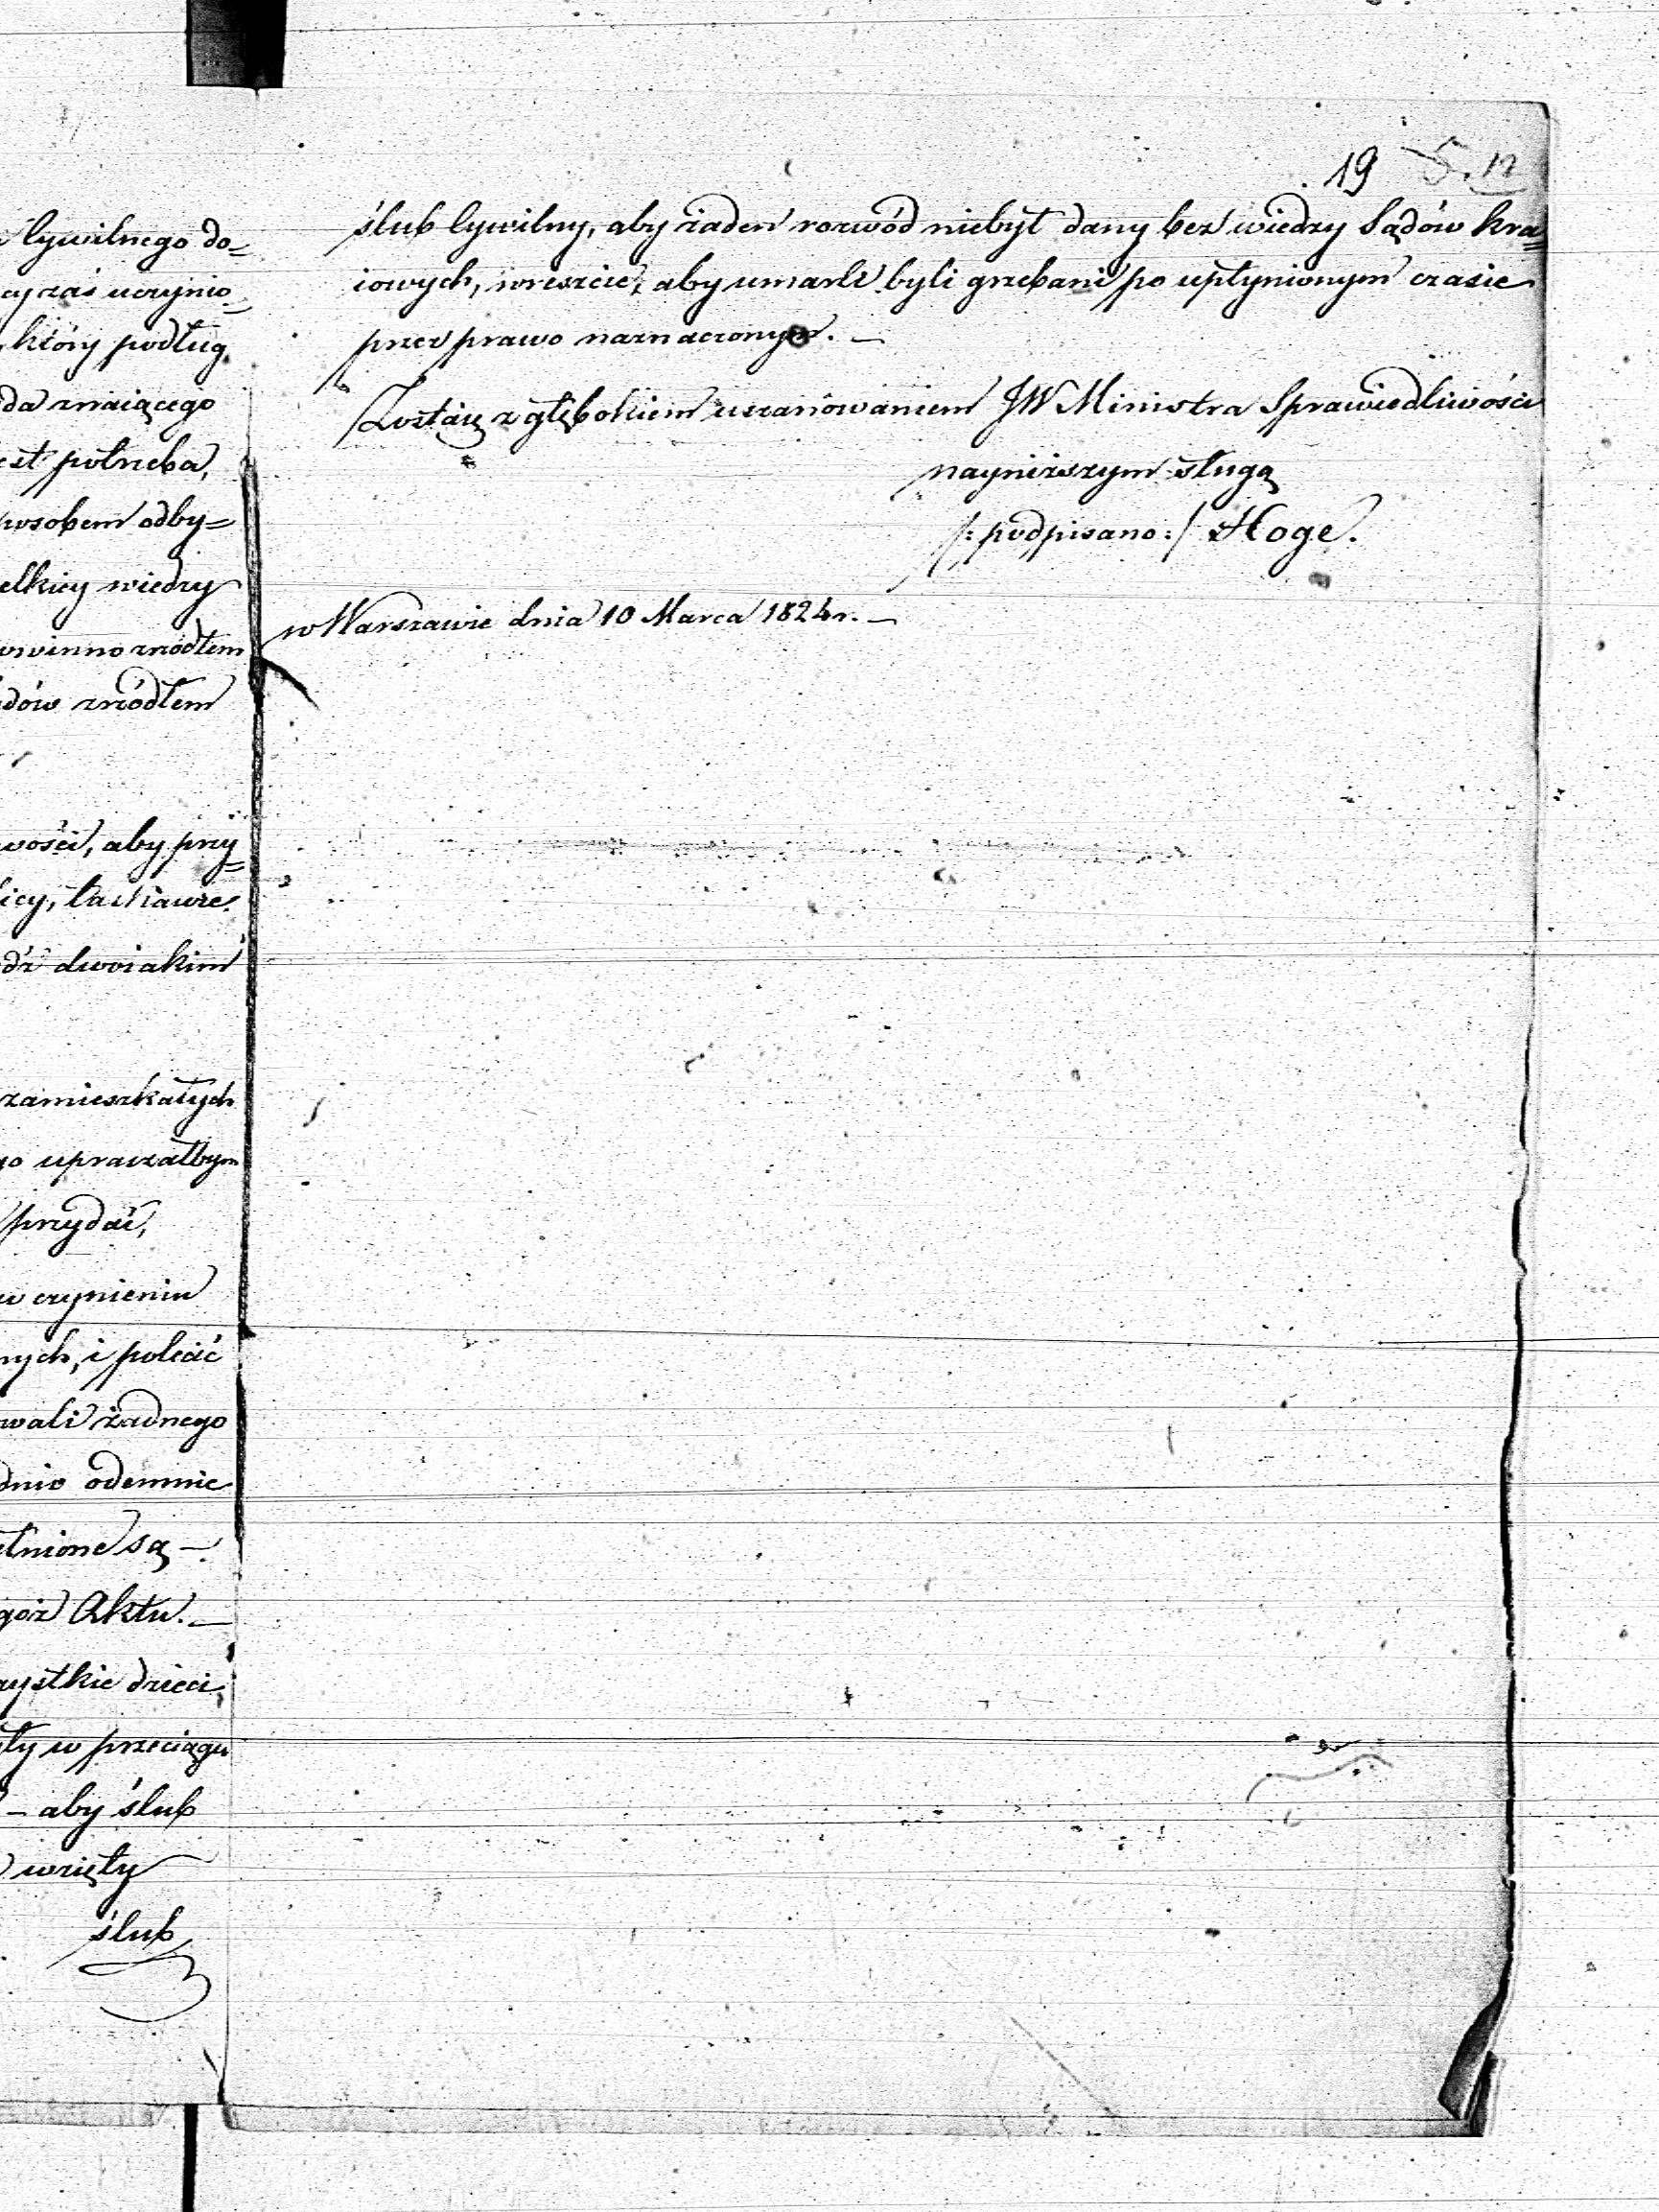 Cywilnego do=
cy zaś uczynio=
który podług
da znaiącego
est potrzeba,
posobem odby=
elkiey wiedzy
winno zrzódłem
dów zrzódłem
wości, aby przy=
icy, łaskawie
dź dwoiakim
zamieszkałych
go upraszałbym
przydać,
w czynieniu
nych, i polecić
wali żadnego
dnio odemnie
ełnione są —
goż Aktu. —
zystkie dzieci,
ły w przeciągu
— aby ślub
wzięty
ślub
19 5. 12
ślub Cywilny, aby żaden rozwód niebył dany bez wiedzy Sądów kra=
iowych, wreszcie, aby umarli byli grzebani po upłynionym czasie
przez prawo naznaczonym. —
Zostaię z głębokiem uszanowaniem JW Ministra Sprawiedliwości
nayniższym sługą
/: podpisano :/ Hoge.
w Warszawie dnia 10 Marca 1824 r. —